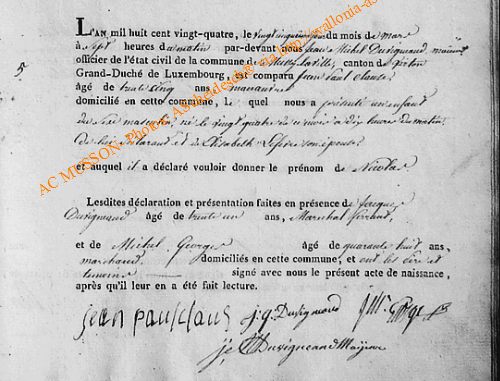 L'AN mil huit cent vingt-quatre, le vingt cinquième jour du mois de mars
à sept heures du matin par-devant nous Jean Michel Duvigneaud, maieur
officier de l'état civil de la commune de Mussy-la-ville, canton de Virton
Grand-Duché de Luxembourg, est comparu Jean Paul Claude
âgé de trente cinq ans
domicilié en cette commune, Le quel nous a présenté un enfant
du sexe masculin, né le vingt quatre de ce mois à dix heures du matin
de lui déclarant et d'Elisabeth son épouse
et auquel il a déclaré vouloir donner le prénom de Nicolas
Lesdites déclaration et présentation faites en présence de Jacques
Duvigneaud âgé de trente un ans, Marechal ferrant
et de Michel Georges âgé de quarante huit ans,
marchand domiciliés en cette commune, et ont les père et
temoins signé avec nous le présent acte de naissance,
après qu'il leur en a été fait lecture.
jean paul claud j.g. Duvigneaud
Duvigneaud Maieur
5
AC MUSSON- Photo